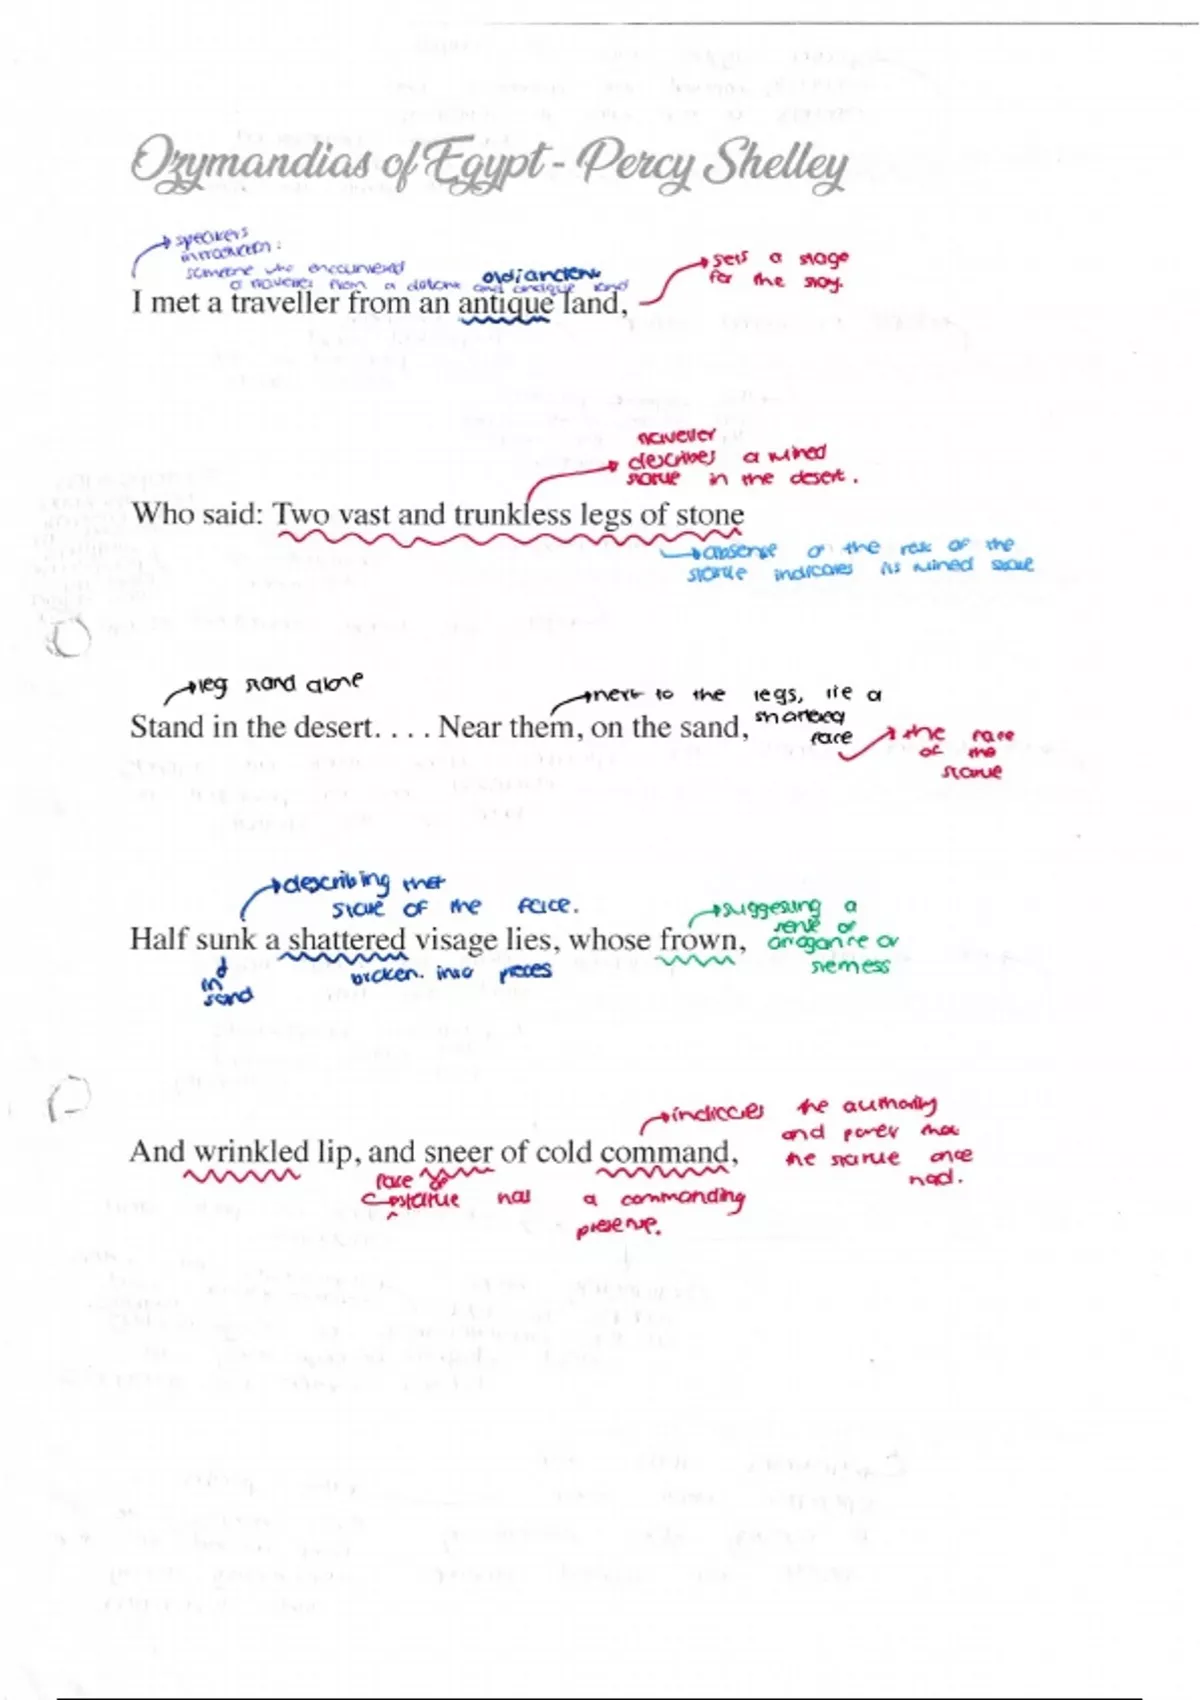 Ozymandias of Egypt - Percy Shelley
speakers
introduction:
someone who encountered
a traveller from a distant and antique land
old/ancient
sets a stage
for the story.
I met a traveller from an antique land,
traveller
describes a ruined
statue in the desert.
Who said: Two vast and trunkless legs of stone
absense of the rest of the
statue indicates its ruined state
leg stand alone
next to the legs, lie a
shattered
face
Stand in the desert. . . . Near them, on the sand,
the face
of the
statue
describing the
state of the face.
suggesting a
sense of
arogance or
sterness
Half sunk a shattered visage lies, whose frown,
in
sand
broken into pieces
indicates the authority
and power that
the statue once
had.
And wrinkled lip, and sneer of cold command,
face of
statue has a commanding
presence.